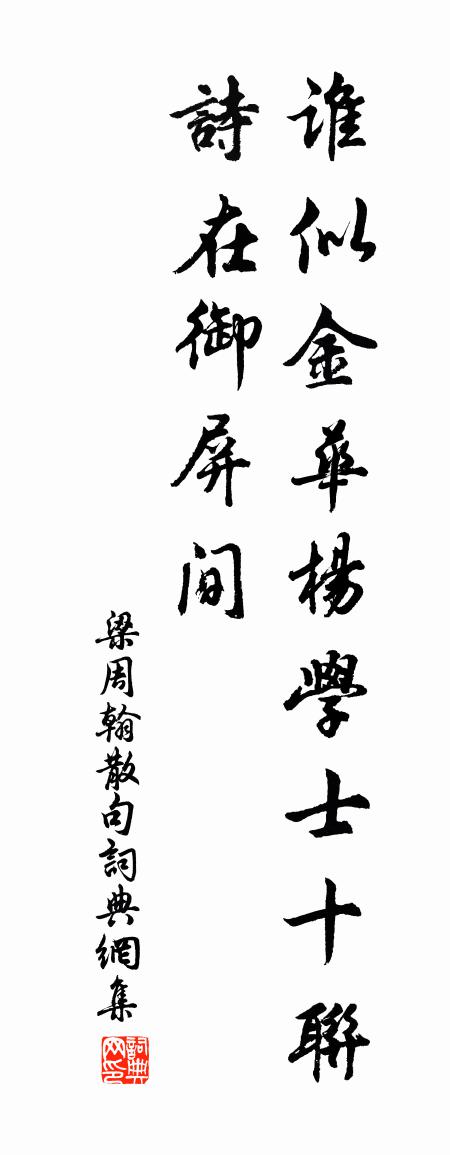 誰似金華楊學士十聯
詩在御屏間
梁周翰散句詞典網集
詞典网印